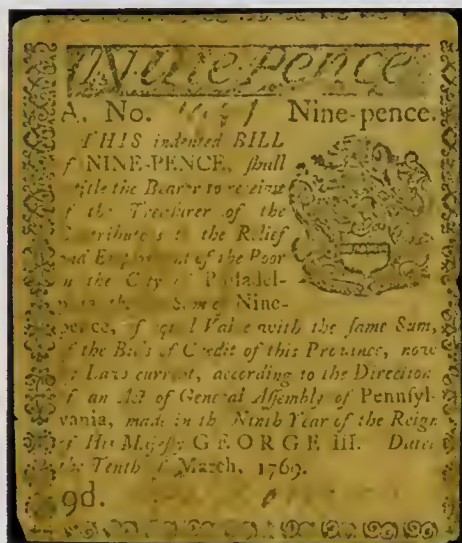 Nine Pence
A. No. Nine-pence.
THIS indented BILL
of NINE-PENCE, ſhall
the Bearer to receive
of the Treaſurer of the
Contributors to the Relief
and Employment of the Poor
in the City of Philadel-
Nine-
pence, of equal Value with the ſame Sum,
of the Bills of Credit of this Province, now
by Law current, according to the Direction
of an Act of General Aſſembly of Pennſyl-
vania, made in the Ninth Year of the Reign
of His Majeſty GEORGE III. Dated
the Tenth of March, 1769.
9d.